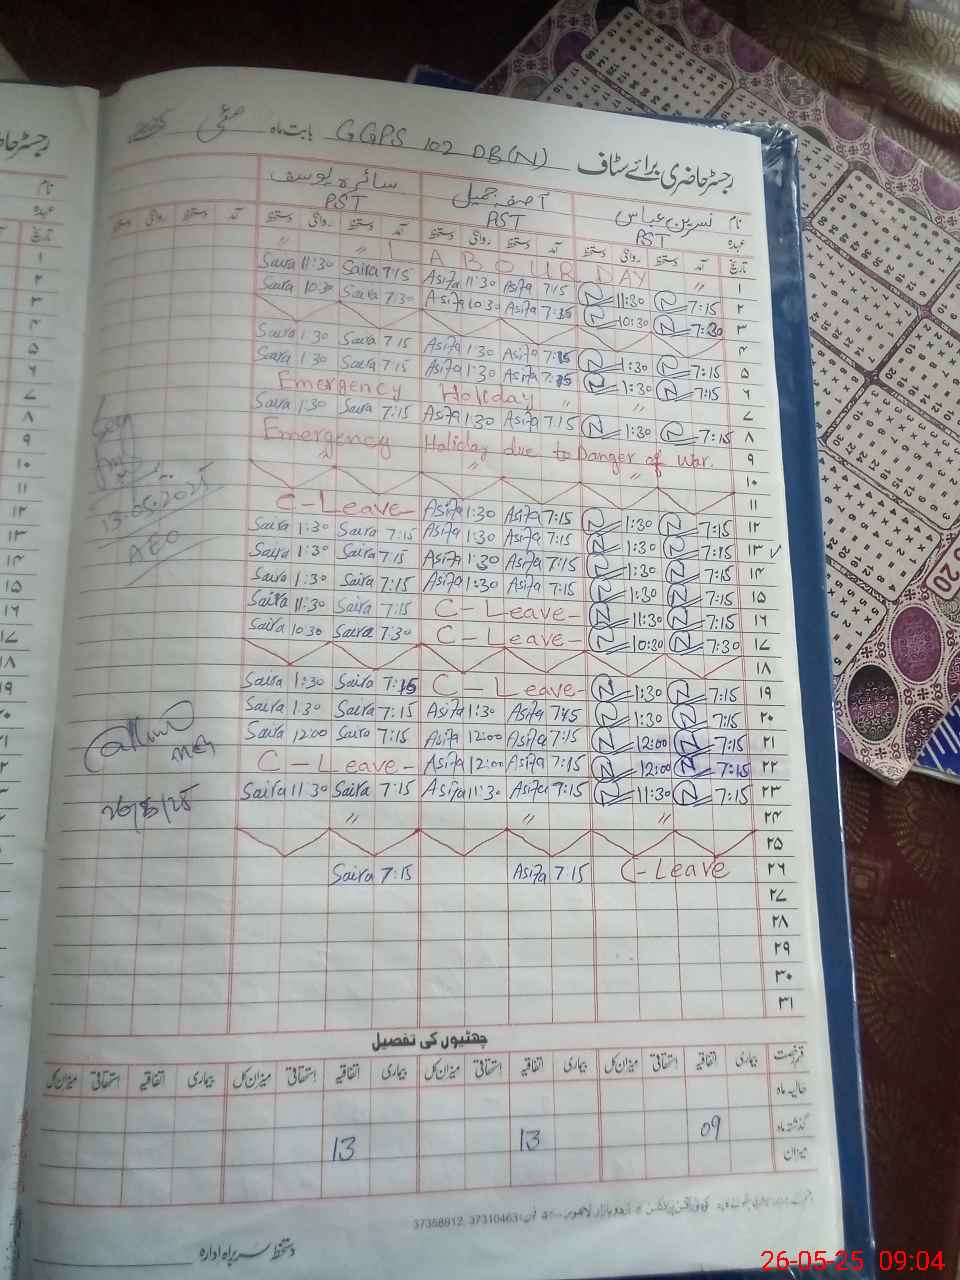 رجسٹر حاضری برائے سٹاف GGPS 102 DB(N) بابت ماہ مئی
نام نسرین عباس آصفہ جمیل سائرہ یوسف
عہدہ PST PST PST
تاریخ آمد دستخط روانگی دستخط آمد دستخط روانگی دستخط آمد دستخط روانگی دستخط آمد دستخط روانگی دستخط
۱ " " LABOUR DAY "
۲ Saira 11:30 Saira 7:15 Asifa 11:30 Asifa 7:15 11:30 7:15
۳ Saira 10:30 Saira 7:30 Asifa 10:30 Asifa 7:15 10:30 7:30
۴
۵ Saira 1:30 Saira 7:15 Asifa 1:30 Asifa 7:15 1:30 7:15
۶ Saira 1:30 Saira 7:15 Asifa 1:30 Asifa 7:15 1:30 7:15
۷ Emergency Holiday " "
۸ Saira 1:30 Saira 7:15 Asifa 1:30 Asifa 7:15 1:30 7:15
۹ Emergency Holiday due to Danger of War.
۱۰ " " "
۱۱
۱۲ C-Leave Asifa 1:30 Asifa 7:15 1:30 7:15
۱۳ Saira 1:30 Saira 7:15 Asifa 1:30 Asifa 7:15 1:30 7:15 ✓
۱۴ Saira 1:30 Saira 7:15 Asifa 1:30 Asifa 7:15 1:30 7:15
۱۵ Saira 1:30 Saira 7:15 Asifa 1:30 Asifa 7:15 1:30 7:15
۱۶ Saira 11:30 Saira 7:15 C-Leave- 11:30 7:15
۱۷ Saira 10:30 Saira 7:30 C-Leave- 10:30 7:30
۱۸
۱۹ Saira 1:30 Saira 7:15 C-Leave- 1:30 7:15
۲۰ Saira 1:30 Saira 7:15 Asifa 1:30 Asifa 7:15 1:30 7:15
۲۱ Saira 12:00 Saira 7:15 Asifa 12:00 Asifa 7:15 12:00 7:15
۲۲ C-Leave- Asifa 12:00 Asifa 7:15 12:00 7:15
۲۳ Saira 11:30 Saira 7:15 Asifa 11:30 Asifa 7:15 11:30 7:15
۲۴ " " "
۲۵
۲۶ Saira 7:15 Asifa 7:15 C-Leave
۲۷
۲۸
۲۹
۳۰
۳۱
13.05.2025
AEO
26/5/25
چھٹیوں کی تفصیل
قسم رخصت بیماری اتفاقیہ استحقاقی میزان کل بیماری اتفاقیہ استحقاقی میزان کل بیماری اتفاقیہ استحقاقی میزان کل بیماری اتفاقیہ استحقاقی میزان کل
حالیہ ماہ
گذشتہ ماہ 09 13 13
میزان
37310463, 37358912
دستخط سربراہ ادارہ
26-05-25 09:04